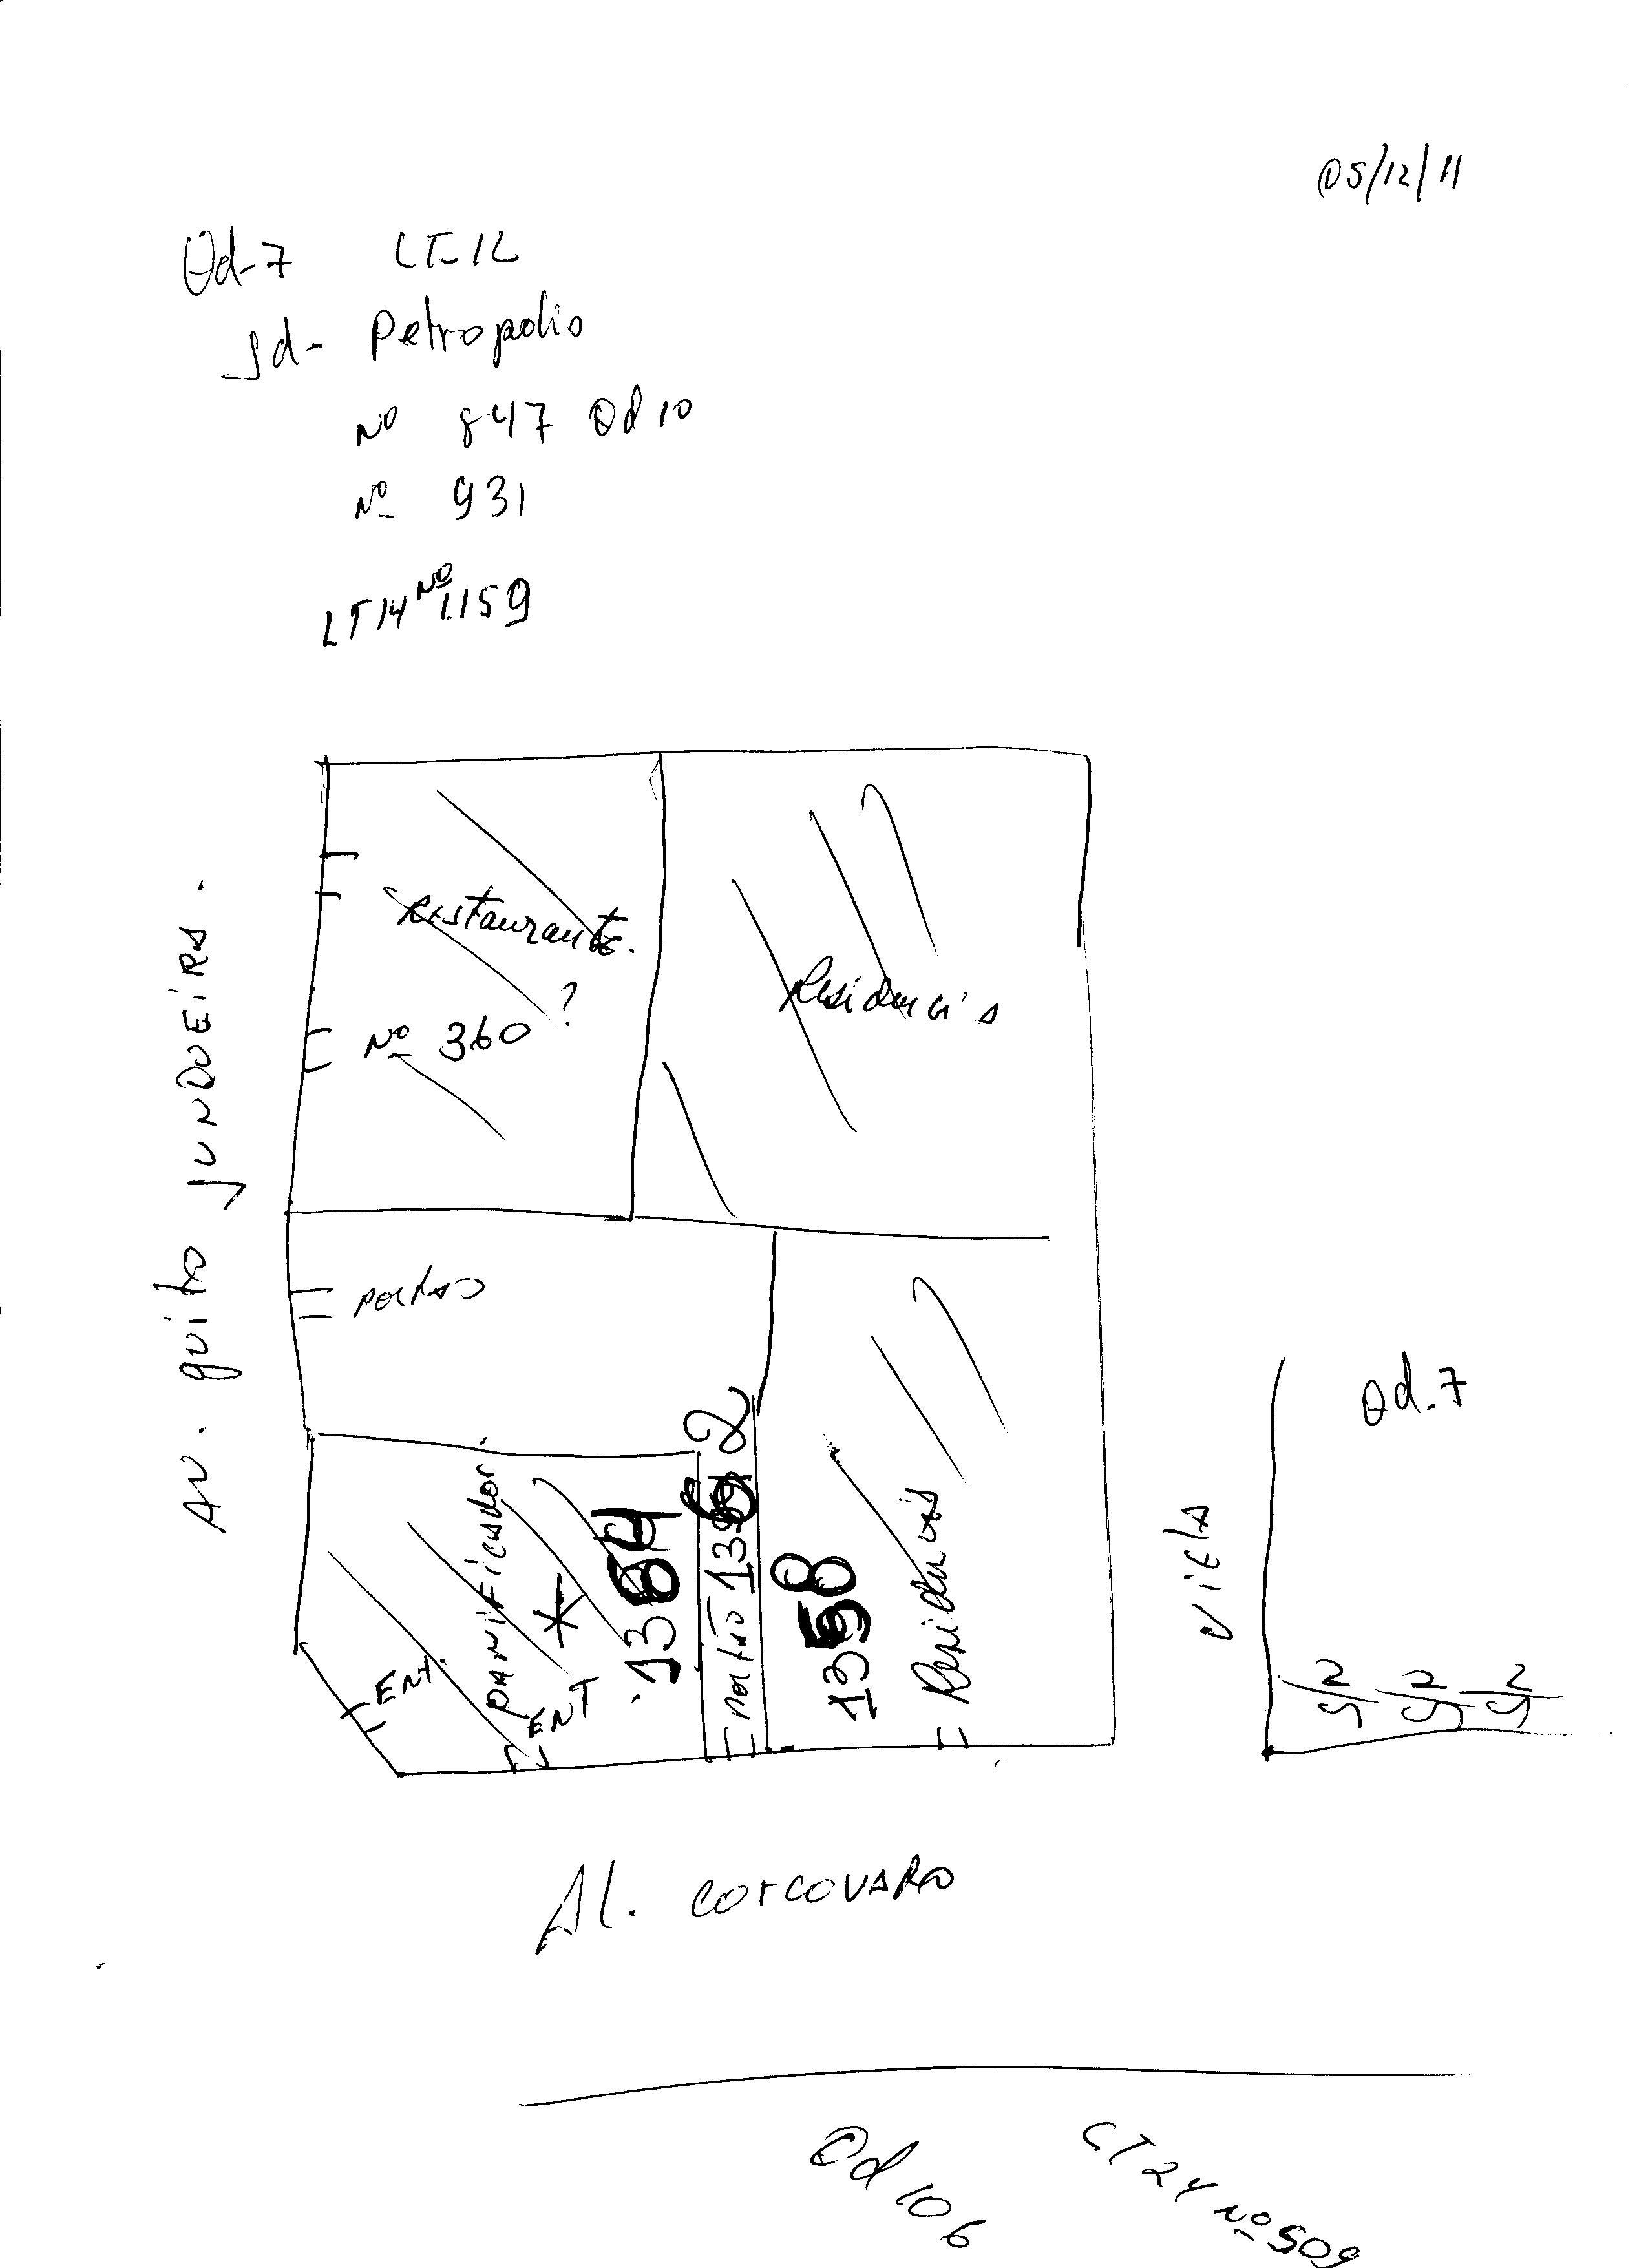 05/12/11
Qd-7 LT-12
Jd- Petropolis
Nº 847 Qd 10
Nº 931
LT 14 Nº 1.159
Restaurante.
Nº 360 ?
Residencia
Av. quito junqueira.
portão
panificador
*
ENT.
ENT
1384
portão 1362
1358
Residencia
Qd-7
viela
Al. corcovado
Qd 106
LT 24 Nº 509